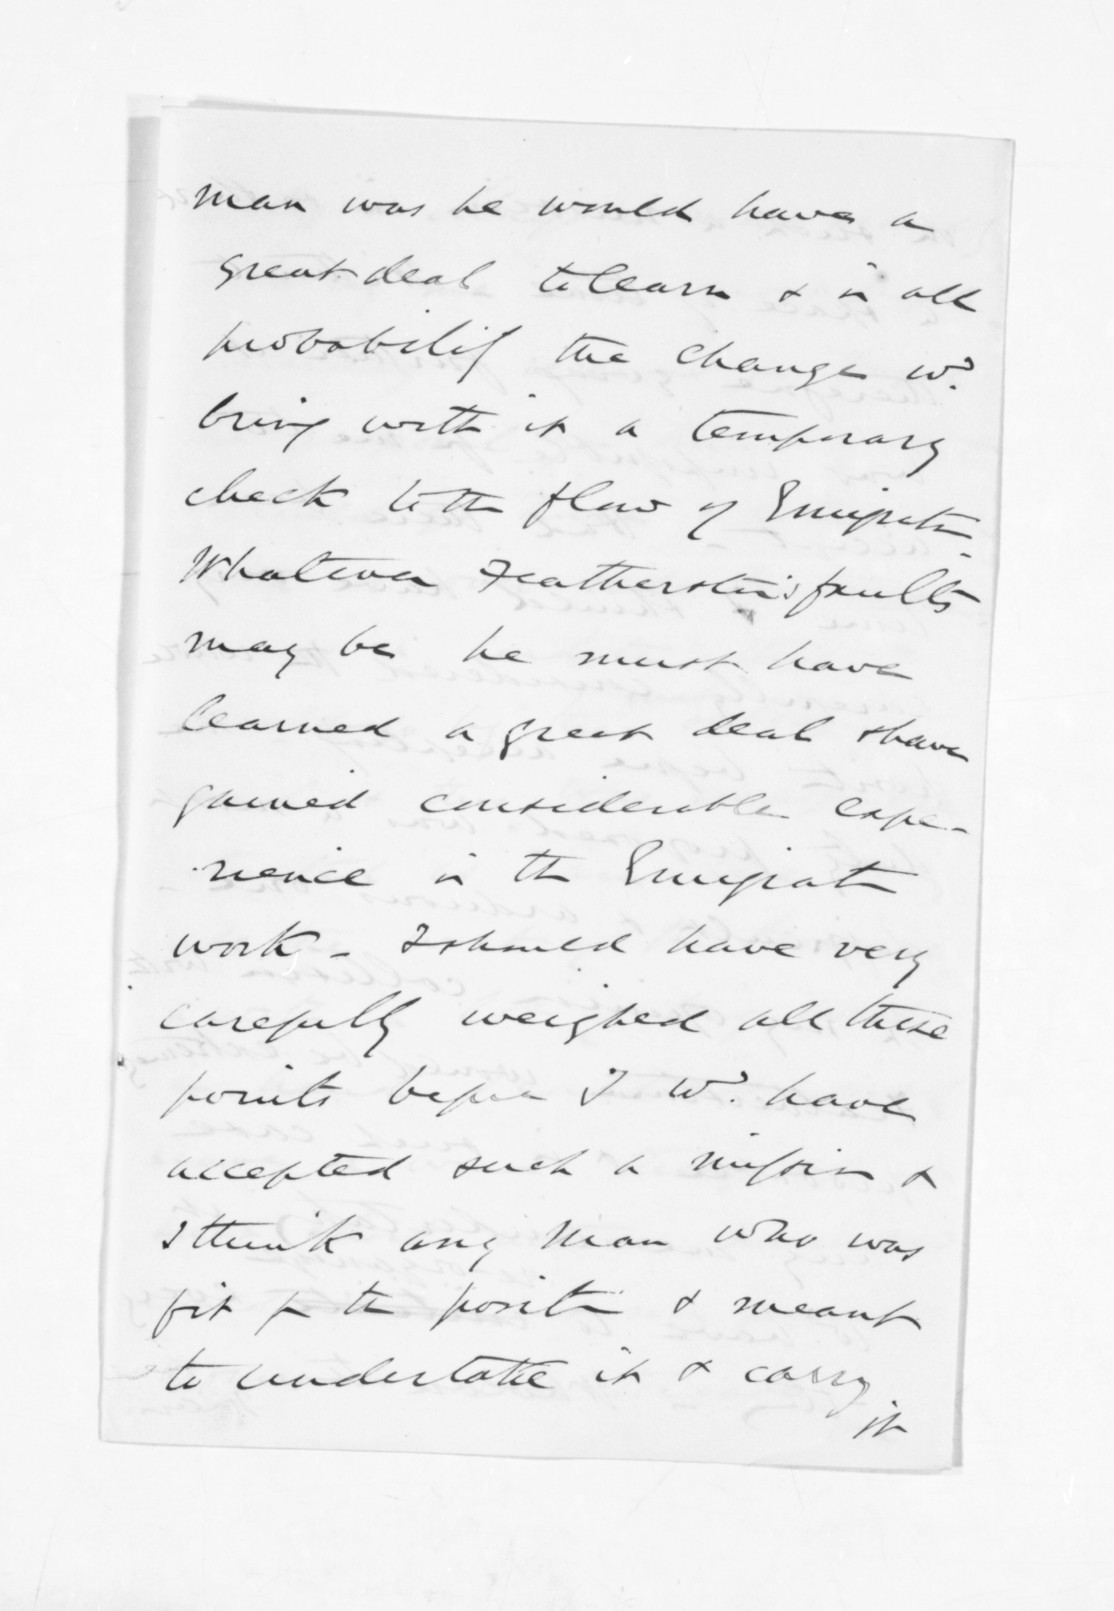 man was he would have a
great deal to learn & in all
probability the change wd.
bring with it a temporary
check to the flow of Emigratn.
Whatever Featherston's faults
may be he must have
learned a great deal & have
gained considerable expe-
rience in the Emigratn
work - I should have very
carefully weighed all these
points before I wd. have
accepted such a mission &
I think any man who was
fit for the positn & meant
to undertake it & carry
it